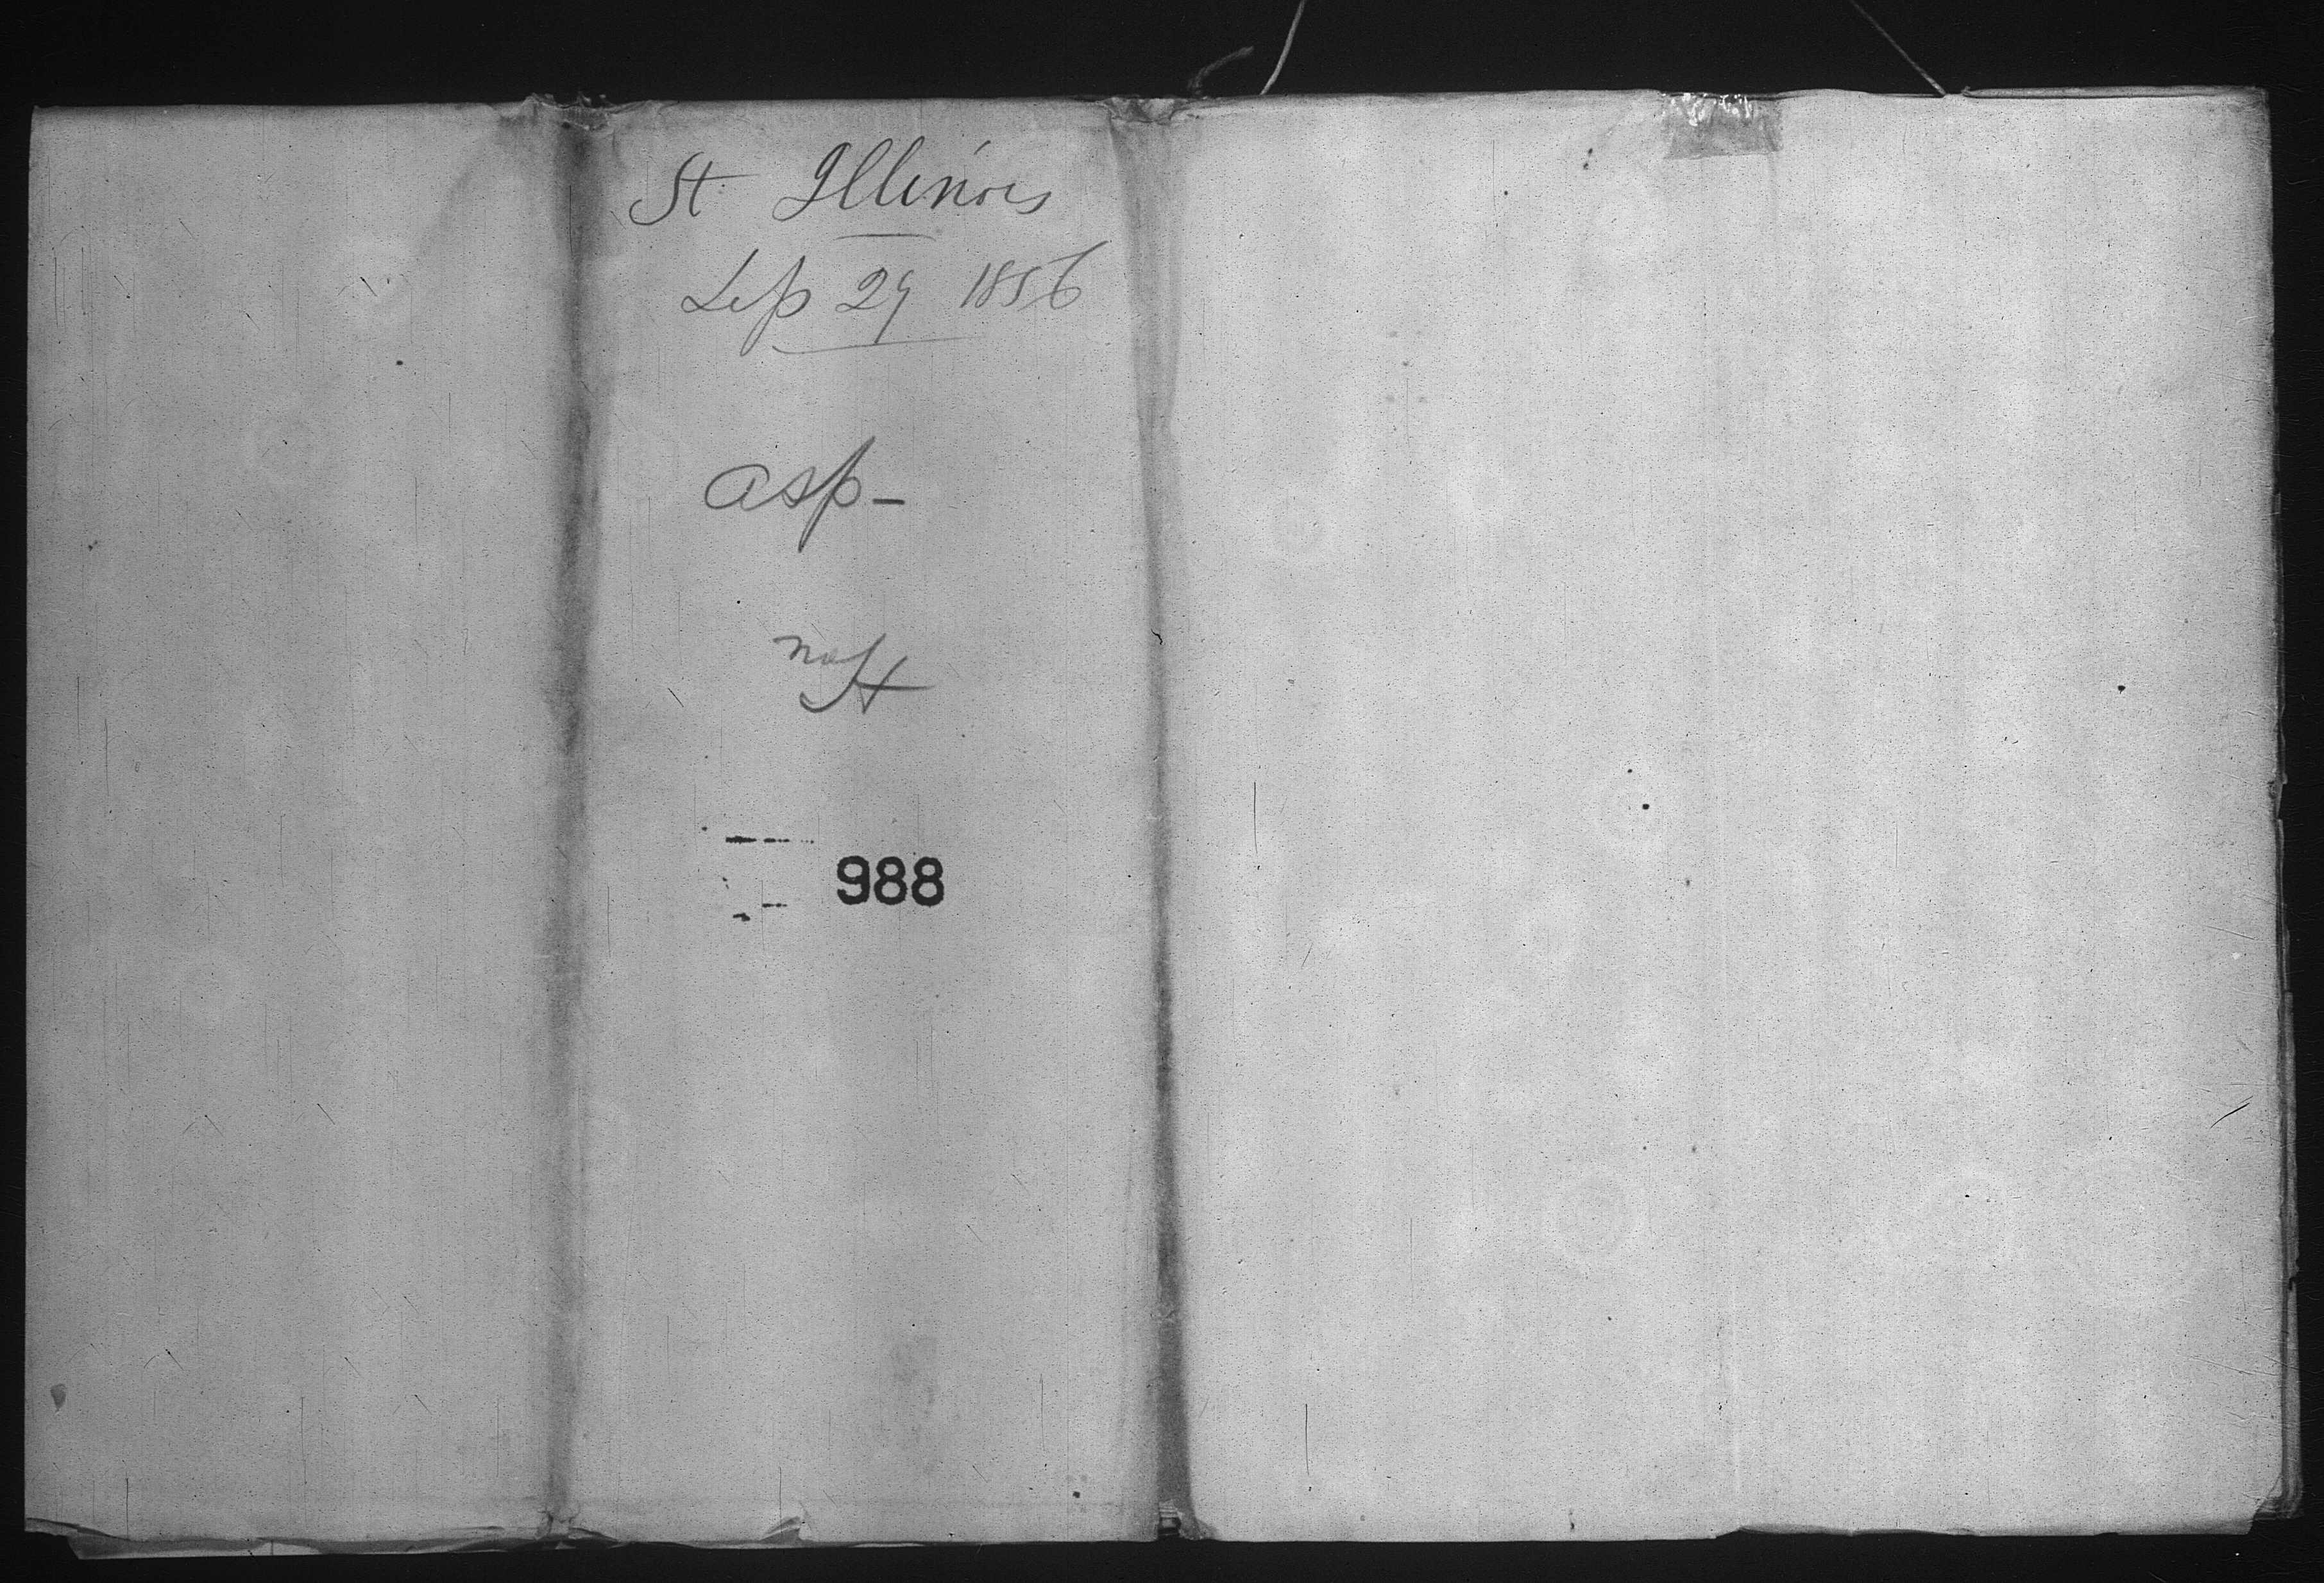 St Illinois
Sep 29 1856
asp-
No H
988